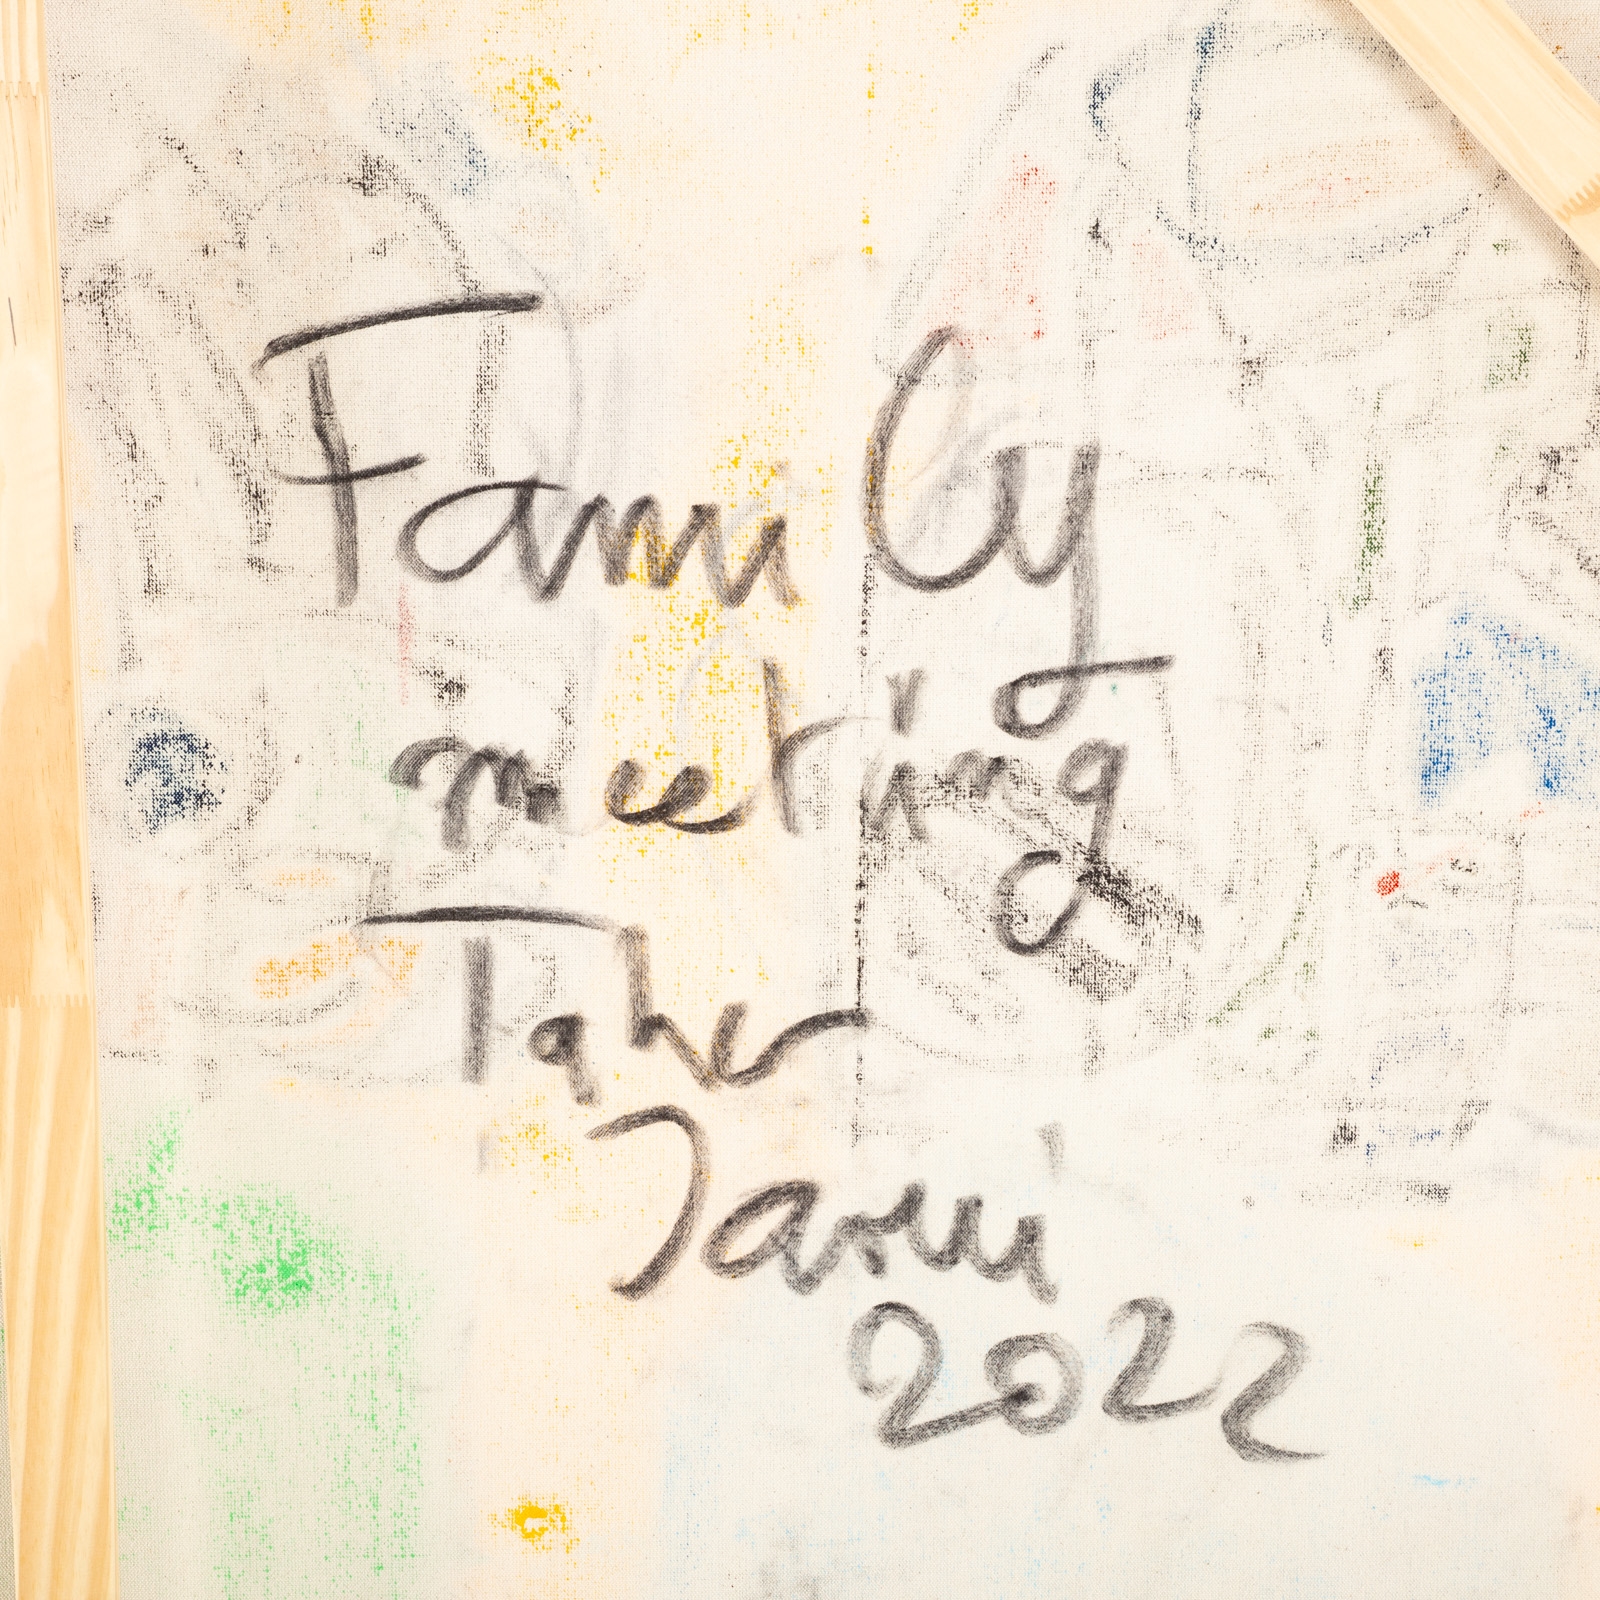 Family
meeting
Taher
Jaoui
2022